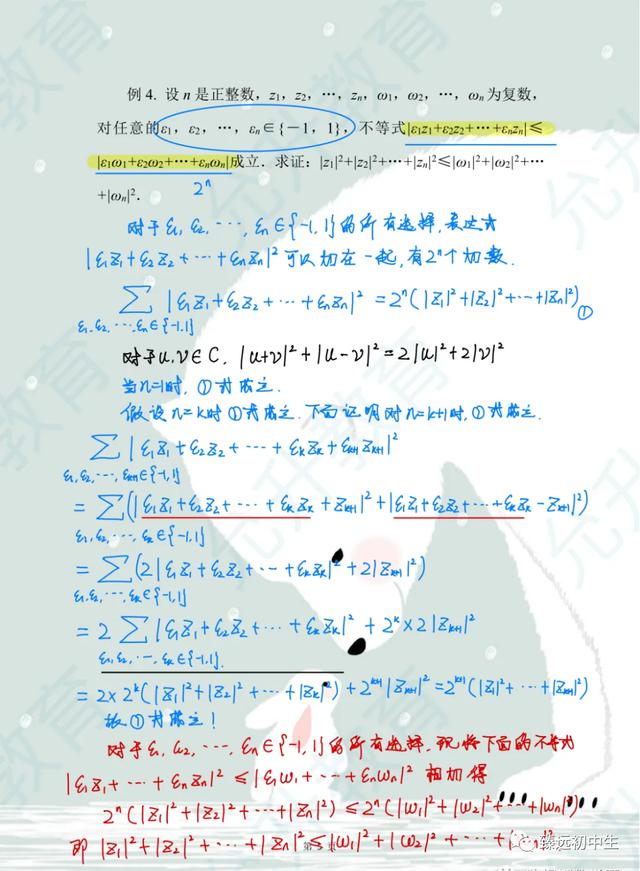 例 4. 设 n 是正整数，z₁，z₂，…，zₙ，ω₁，ω₂，…，ωₙ为复数，
对任意的ε₁，ε₂，…，εₙ∈{－1，1}，不等式|ε₁z₁+ε₂z₂+…+εₙzₙ|≤
|ε₁ω₁+ε₂ω₂+…+εₙωₙ|成立．求证：|z₁|²+|z₂|²+…+|zₙ|²≤|ω₁|²+|ω₂|²+…
+|ωₙ|².
2ⁿ
对于ε₁, ε₂, …, εₙ∈{-1,1}的所有选择, 表达式
|ε₁z₁+ε₂z₂+…+εₙzₙ|² 可以加在一起, 有2ⁿ个加数.
∑ |ε₁z₁+ε₂z₂+…+εₙzₙ|² = 2ⁿ(|z₁|²+|z₂|²+…+|zₙ|²) ①
ε₁,ε₂,…,εₙ∈{-1,1}
对于u,v∈C, |u+v|²+|u-v|²=2|u|²+2|v|²
当n=1时, ①式成立.
假设n=k时①式成立. 下面证明对n=k+1时, ①式成立.
∑ |ε₁z₁+ε₂z₂+…+εₖzₖ+εₖ₊₁zₖ₊₁|²
ε₁,ε₂,…,εₖ₊₁∈{-1,1}
= ∑(|ε₁z₁+ε₂z₂+…+εₖzₖ+zₖ₊₁|²+|ε₁z₁+ε₂z₂+…+εₖzₖ-zₖ₊₁|²)
ε₁,ε₂,…,εₖ∈{-1,1}
= ∑(2|ε₁z₁+ε₂z₂+…+εₖzₖ|²+2|zₖ₊₁|²)
ε₁,ε₂,…,εₖ∈{-1,1}
= 2 ∑ |ε₁z₁+ε₂z₂+…+εₖzₖ|² + 2ᵏ×2|zₖ₊₁|²
ε₁,ε₂,…,εₖ∈{-1,1}.
= 2×2ᵏ(|z₁|²+|z₂|²+…+|zₖ|²)+2ᵏ⁺¹|zₖ₊₁|²=2ᵏ⁺¹(|z₁|²+…+|zₖ₊₁|²)
故①式成立!
对于ε₁, ε₂, …, εₙ∈{-1,1}的所有选择, 现将下面的不等式
|ε₁z₁+…+εₙzₙ|² ≤|ε₁ω₁+…+εₙωₙ|² 相加得
2ⁿ(|z₁|²+|z₂|²+…+|zₙ|²)≤2ⁿ(|ω₁|²+|ω₂|²+…+|ωₙ|²)
即 |z₁|²+|z₂|²+…+|zₙ|²≤|ω₁|²+|ω₂|²+…+|ωₙ|².
臻远初中生
允升教育